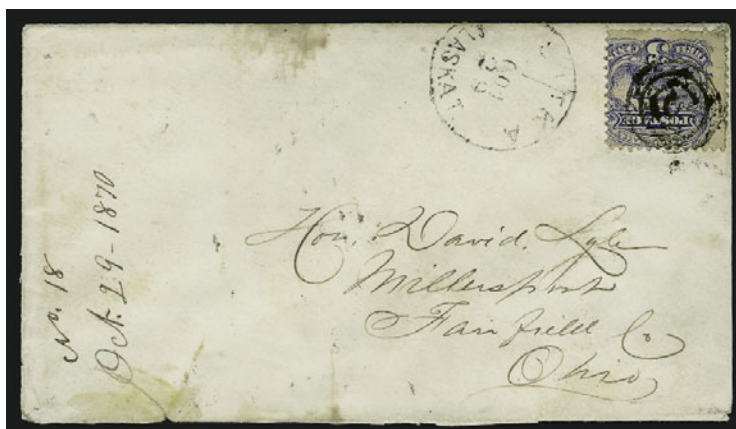 SITKA
ALASKA
OCT
29
POSTAGE
Hon. David. Lyle
Millersport
Fairfield Co
Ohio
No. 18
Oct. 29-1870